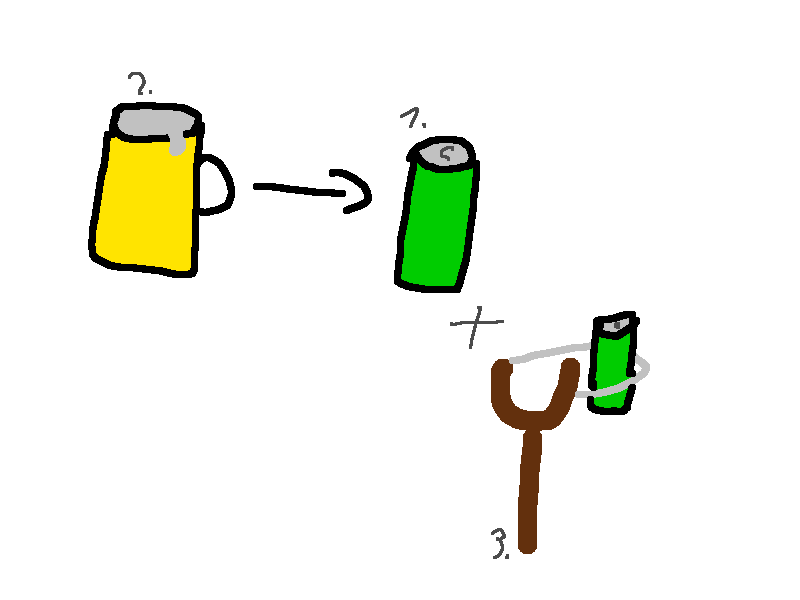 2.
1.
+
3.